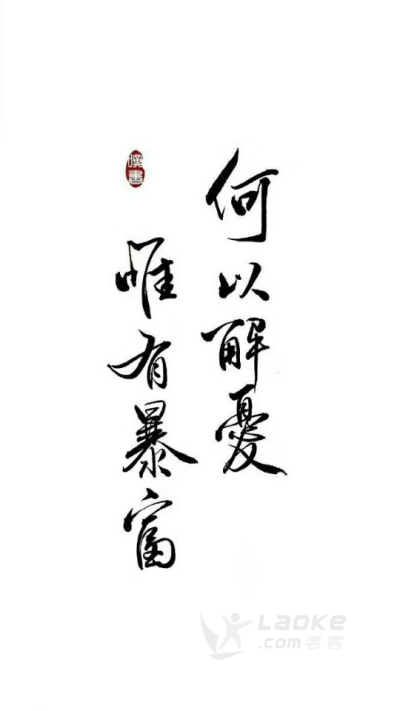 何以解憂
惟有暴富
LAOKE
.com老客